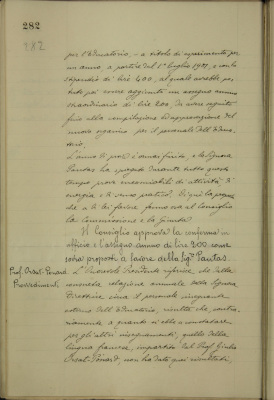 282
282
per l'educatorio, - a titolo di esperimento per
un anno a partire dal 1° luglio 1907 e con lo
stipendio di lire 400, al quale avrebbe po-
tuto poi essere aggiunto un assegno annuo
straordinario di lire 200, da avere seguito
fino alla compilazione ed approvazione del
nuovo organico per il personale dell'educa-
torio.
L'anno di prova è ormai finito e la Signora
Pautas ha spiegato durante tutto questo
tempo prove encomiabili di attività, di
energia e di senso pratico. Di qui la propo-
sta a di lei favore fanno ora al Consiglio
la Commissione e la Giunta.
Il Consiglio approva la conferma in
ufficio e l'assegno annuo di lire 200 come
sopra proposti a favore della Sig.ª Pautas.
Prof. Orsat-Ponard
Provvedimenti
L'Onorevole Presidente riferisce che dalla
consueta relazione annuale della Signora
Direttrice circa il personale insegnante
esterno dell'educatorio, risulta che, contra-
riamente a quanto si ebbe a constatare
per gli altri insegnamenti, quello della
lingua francese, impartito dal Prof. Giulio
Orsat-Ponard non ha dato quei risultati,